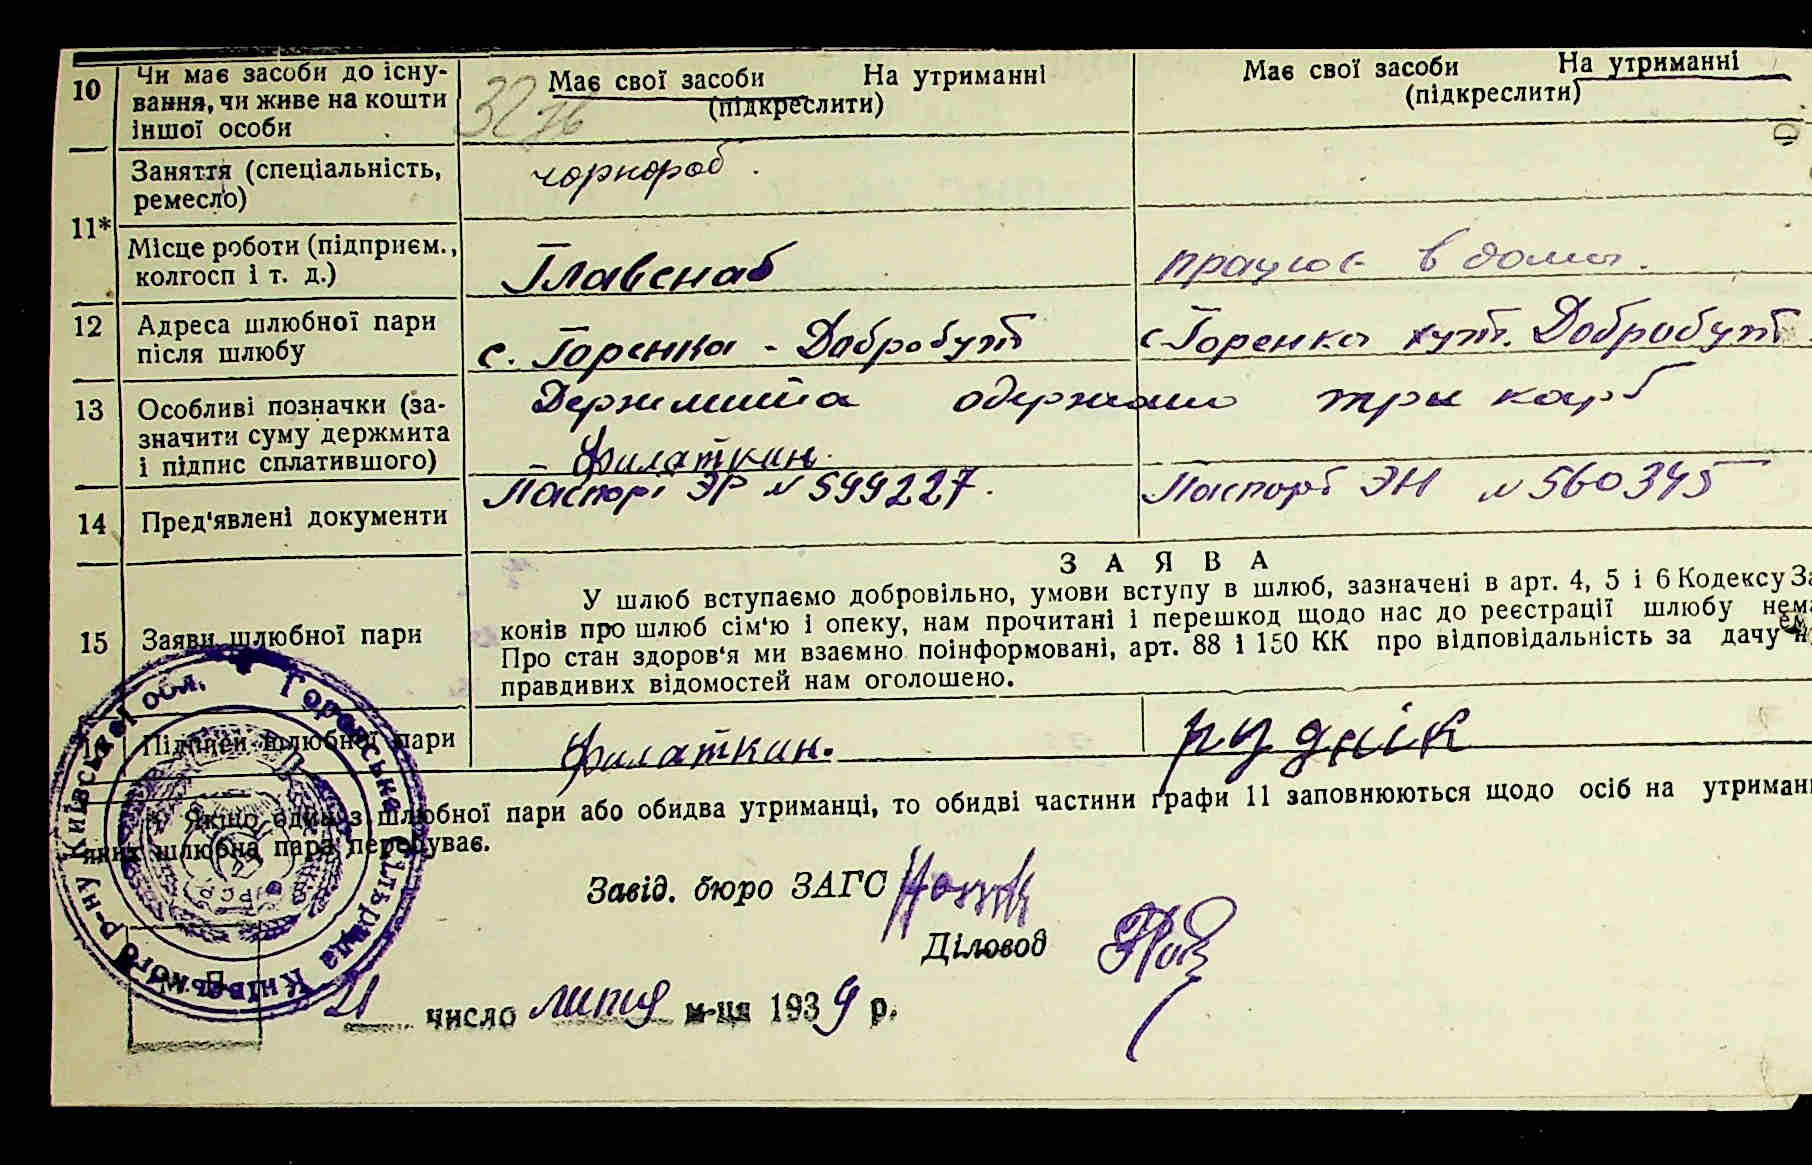 10 Чи має засоби до існу-
вання, чи живе на кошти
іншої особи
Має свої засоби На утриманні
(підкреслити)
Має свої засоби На утриманні
(підкреслити)
32
Заняття (спеціальність,
ремесло)
чорнороб.
11*
Місце роботи (підприєм.,
колгосп і т. д.)
Главснаб
працює в дома.
12 Адреса шлюбної пари
після шлюбу
с. Горенка - Добробут
с Горенка хут. Добробут
13 Особливі позначки (за-
значити суму держмита
і підпис сплатившого)
Держмита одержано три карб
Филаткин.
14 Пред'явлені документи
Паспорт ЭР № 599227.
Паспорт ЭН № 560345
З А Я В А
15 Заяви шлюбної пари
У шлюб вступаємо добровільно, умови вступу в шлюб, зазначені в арт. 4, 5 і 6 Кодексу За
конів про шлюб сім'ю і опеку, нам прочитані і перешкод щодо нас до реєстрації шлюбу нема
Про стан здоров'я ми взаємно поінформовані, арт. 88 і 150 КК про відповідальність за дачу н
правдивих відомостей нам оголошено.
Підписи шлюбної пари
Филаткин.
руднік
* Якщо одна з шлюбної пари або обидва утриманці, то обидві частини графи 11 заповнюються щодо осіб на утриман
яких шлюбна пара перебуває.
Завід. бюро ЗАГС
Діловод
М. П.
21 число липня м-ця 1939 р.
Горенська сільрада Київського р-ну Київської обл.
УРСР